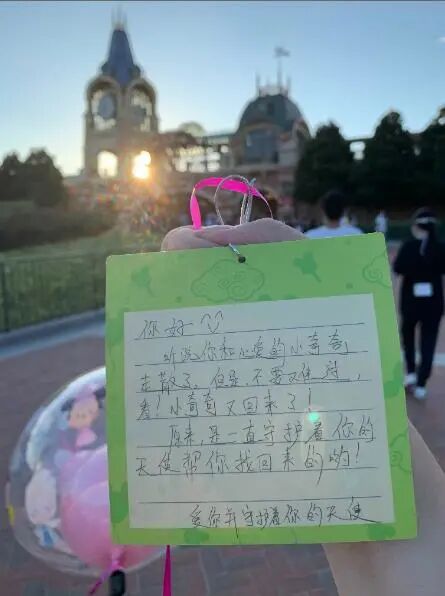 你好
听说你和心爱的小奇奇
走散了。但是,不要太伤心,
看!小奇奇又回来了!
原来,是一直守护着你的
天使帮你找回来的哟!
爱你并守护着你的天使